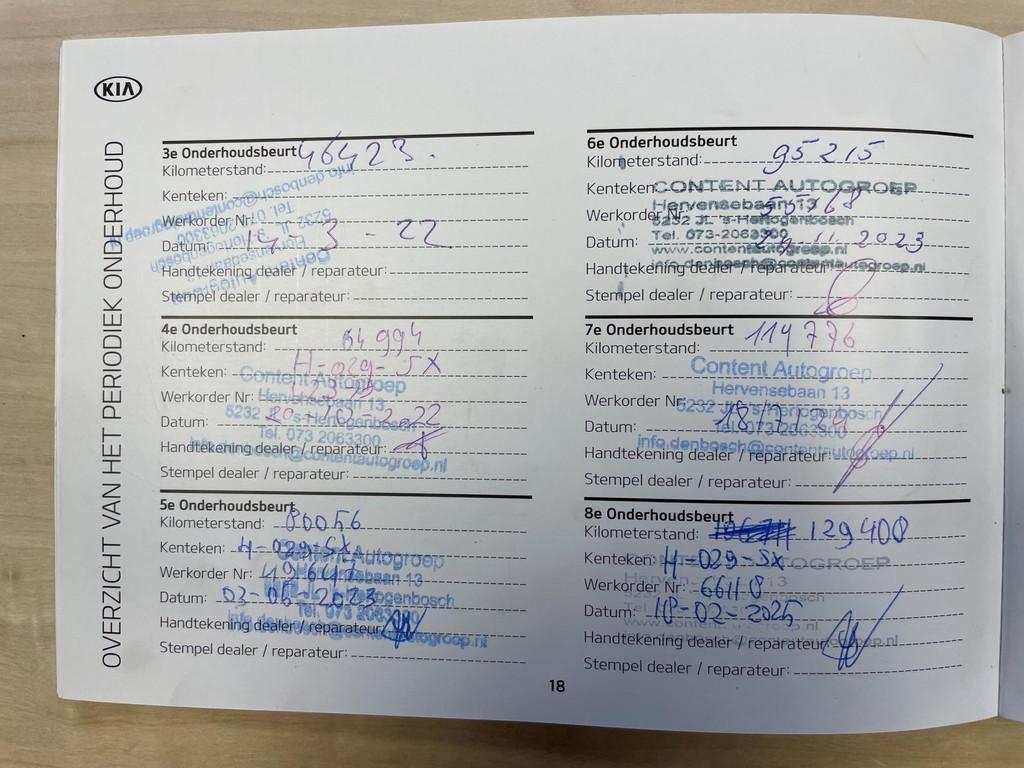 KIA
OVERZICHT VAN HET PERIODIEK ONDERHOUD
3e Onderhoudsbeurt
Kilometerstand: 46423.
Kenteken:
Werkorder Nr:
Datum: 14-3-22
Handtekening dealer / reparateur:
Stempel dealer / reparateur:
4e Onderhoudsbeurt
Kilometerstand: 64994
Kenteken: H-029-SX
Content Autogroep
Werkorder Nr:
Hervensebaan 13
Datum: 20-10-2022
5232 JL 's-Hertogenbosch
Tel. 073 2063300
Handtekening dealer / reparateur:
info.denbosch@contentautogroep.nl
Stempel dealer / reparateur:
5e Onderhoudsbeurt
Kilometerstand: 80056
Kenteken: H-029-SX
Content Autogroep
Werkorder Nr:
Hervensebaan 13
Datum: 02-06-2023
5232 JL 's-Hertogenbosch
Tel. 073 2063300
Handtekening dealer / reparateur:
info.denbosch@contentautogroep.nl
Stempel dealer / reparateur:
6e Onderhoudsbeurt
Kilometerstand: 95215
Kenteken:
CONTENT AUTOGROEP
Hervensebaan 13
Werkorder Nr:
5232 JL 's-Hertogenbosch
Tel. 073-2063300
Datum: 2023
www.contentautogroep.nl
Handtekening dealer / reparateur:
info.denbosch@contentautogroep.nl
Stempel dealer / reparateur:
7e Onderhoudsbeurt
Kilometerstand: 114776
Kenteken:
Content Autogroep
Hervensebaan 13
Werkorder Nr:
5232 JL 's-Hertogenbosch
Datum: 18/7/
Tel. 073 2063300
info.denbosch@contentautogroep.nl
Handtekening dealer / reparateur:
Stempel dealer / reparateur:
8e Onderhoudsbeurt
Kilometerstand: 129400
Kenteken: H-029-SX
Werkorder Nr: 66118
Datum: 18-02-2025
Handtekening dealer / reparateur:
Stempel dealer / reparateur:
18